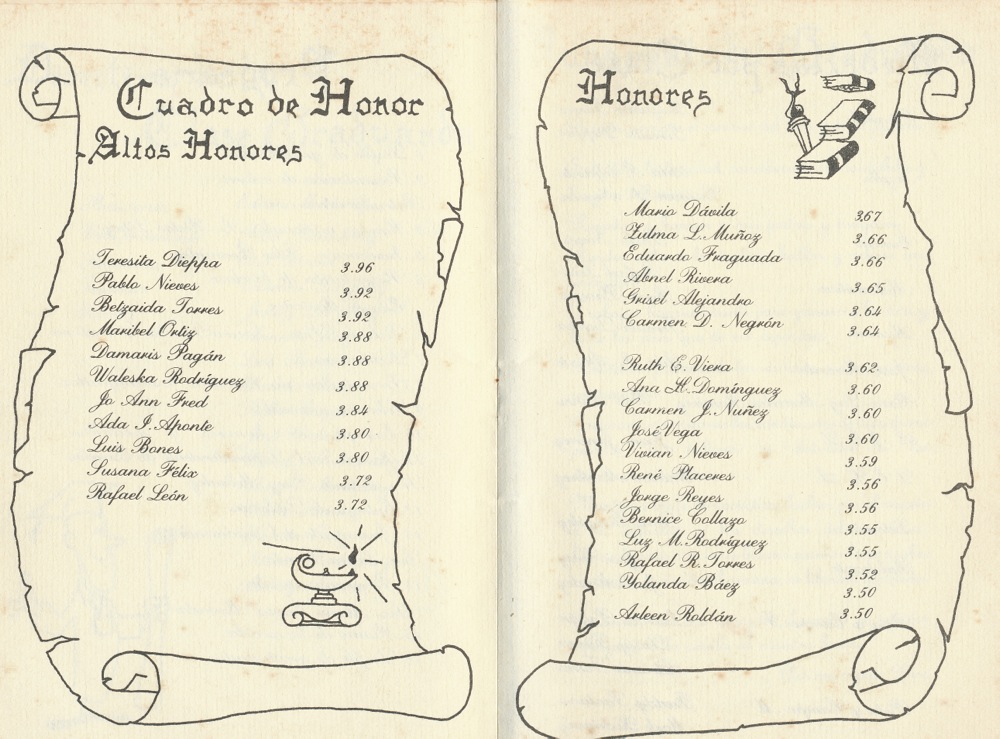 Cuadro de Honor
Altos Honores
Teresita Dieppa 3.96
Pablo Nieves 3.92
Betzaida Torres 3.92
Maribel Ortiz 3.88
Damaris Pagán 3.88
Waleska Rodríguez 3.88
Jo Ann Fred 3.84
Ada I. Aponte 3.80
Luis Bones 3.80
Susana Félix 3.72
Rafael León 3.72
Honores
Mario Dávila 3.67
Zulma L. Muñoz 3.66
Eduardo Fraguada 3.66
Abnel Rivera 3.65
Grisel Alejandro 3.64
Carmen D. Negrón 3.64
Ruth E. Viera 3.62
Ana H. Domínguez 3.60
Carmen J. Nuñez 3.60
José Vega 3.60
Vivian Nieves 3.59
René Placeres 3.56
Jorge Reyes 3.56
Bernice Collazo 3.55
Luz M. Rodríguez 3.55
Rafael R. Torres 3.52
Yolanda Báez 3.50
Arleen Roldán 3.50